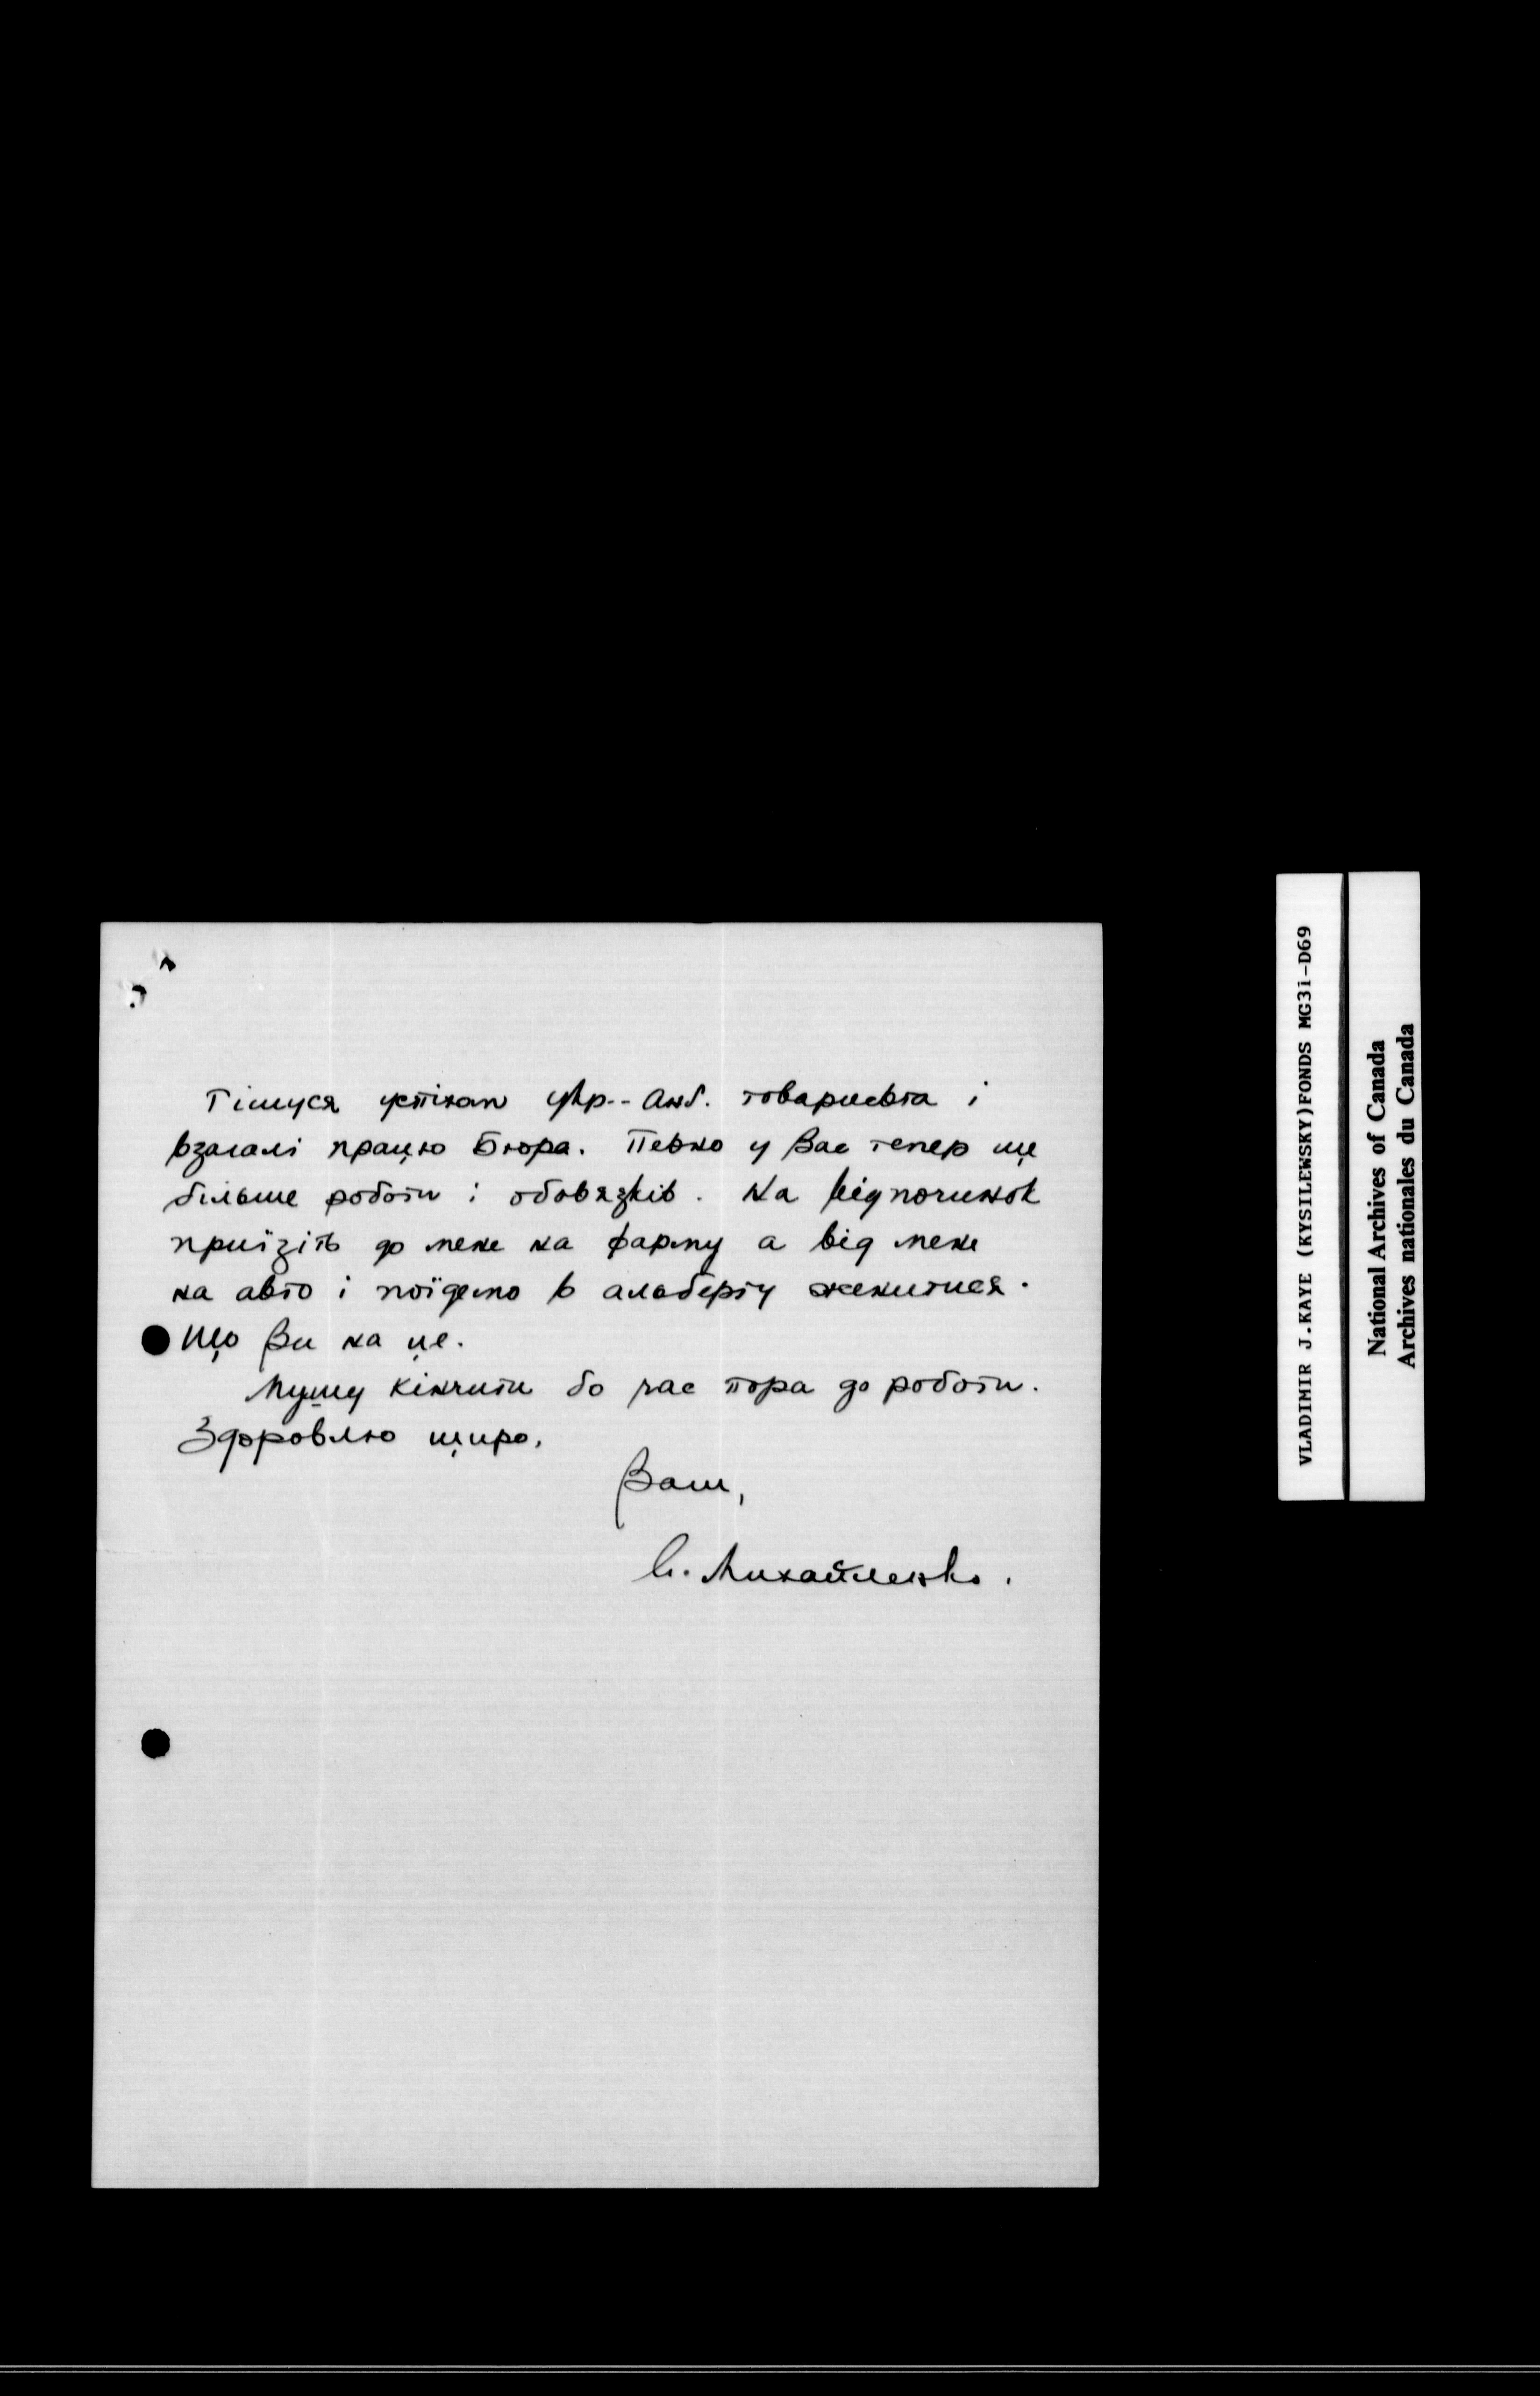 Тішуся успіхам Укр.-Анг. товариства і
взагалі працю Бюра. Певно у Вас тепер ще
більше роботи і обовязків. На відпочинок
приїзіть до мене на фарму а від мене
на авто і поїдемо в альберту женитися.
Що Ви на це.
Мушу кінчити бо час пора до роботи.
Здоровлю щиро,
Ваш,
Михайленко.
VLADIMIR J.KAYE (KYSILEWSKY)FONDS MG31-D69
National Archives of Canada
Archives nationales du Canada